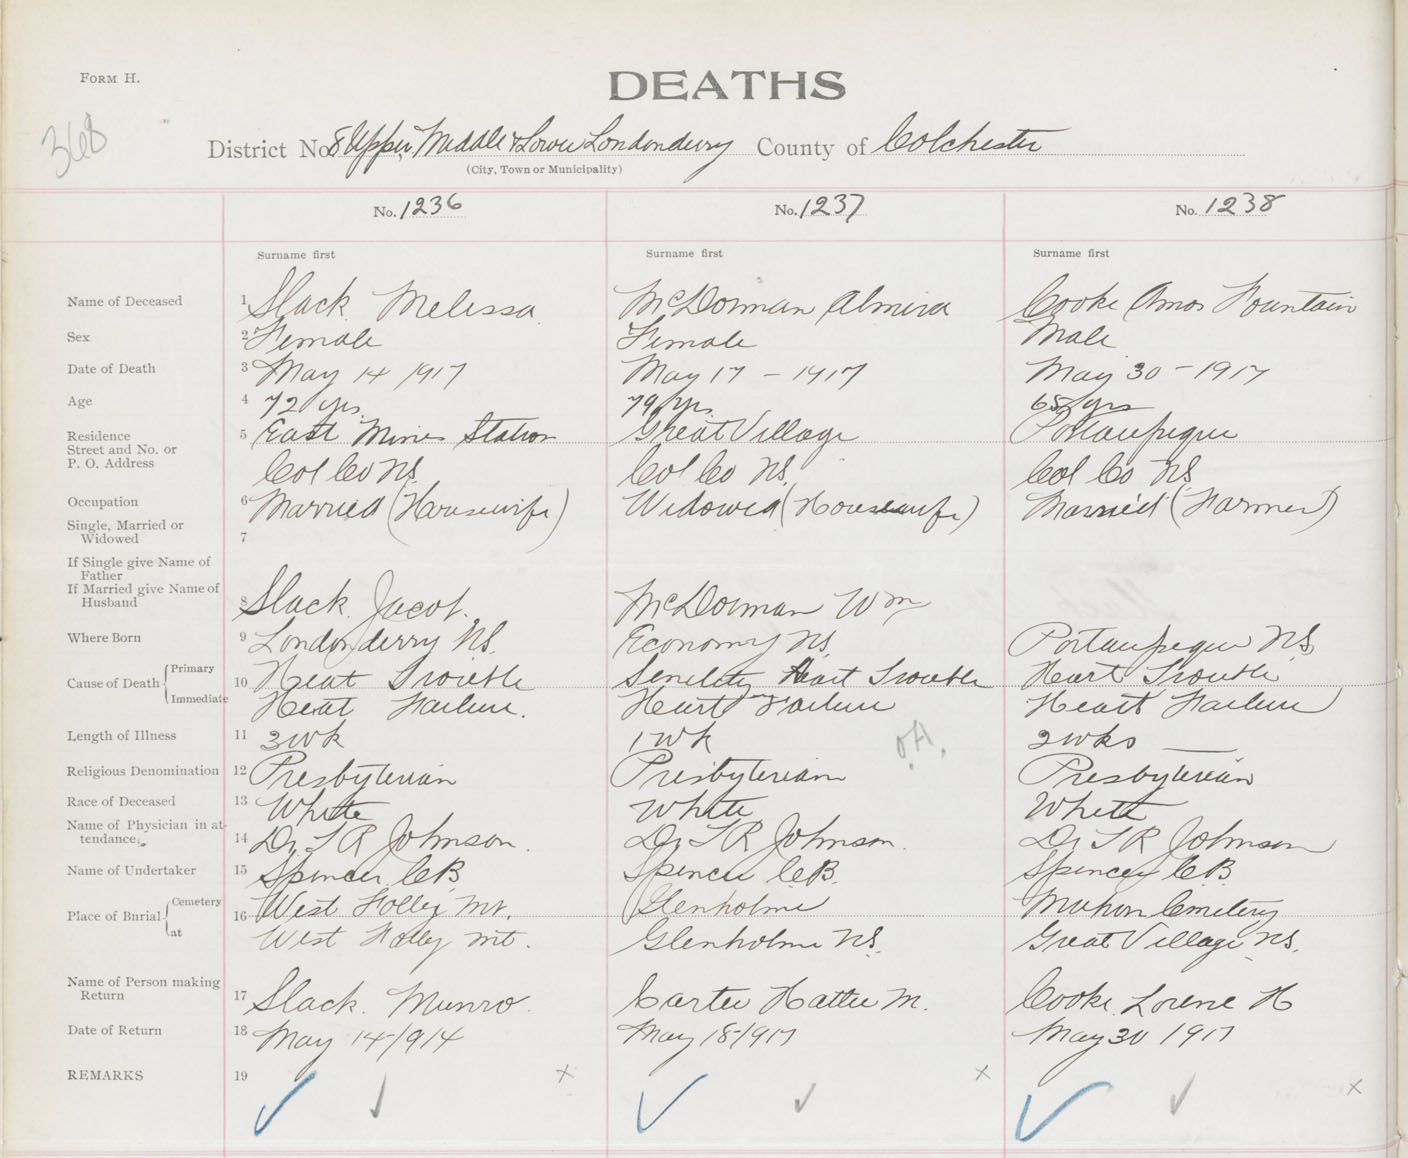 FORM H.
DEATHS
368
District No. 8 Upper, Middle & Lower Londonderry County of Colchester
(City, Town or Municipality)
No. 1236 No. 1237 No. 1238
Surname first Surname first Surname first
Name of Deceased 1 Slack Melissa McDorman Almira Cooke Amos Fountain
Sex 2 Female Female Male
Date of Death 3 May 14 1917 May 17 - 1917 May 30 - 1917
Age 4 72 yrs 79 yrs 68 yrs
Residence 5 East Mines Station Great Village Portaupeque
Street and No. or
P. O. Address Col Co NS. Col Co NS. Col Co NS
Occupation 6 Married (Housewife) Widowed (Housewife) Married (Farmer)
Single, Married or
Widowed 7
If Single give Name of
Father
If Married give Name of
Husband 8 Slack Jacob. McDorman Wm
Where Born 9 Londonderry NS. Economy NS. Portaupeque NS
Cause of Death Primary 10 Heat Trouble Senility Heart Trouble Heart Trouble
Immediate Heat Failure. Heart Failure Heart Failure
Length of Illness 11 3 wk 1 wk 2 wks
Religious Denomination 12 Presbyterian Presbyterian Presbyterian
Race of Deceased 13 White White White
Name of Physician in at-
tendance 14 Dr. T R Johnson. Dr T R Johnson. Dr T R Johnson
Name of Undertaker 15 Spencer C B Spencer C B. Spencer C B.
Place of Burial Cemetery 16 West Folley Mt. Glenholme Mahon Cemetery
at West Folley mt. Glenholme NS. Great Village NS.
Name of Person making
Return 17 Slack. Munro. Carter Hattie M. Cooke Lorene H
Date of Return 18 May 14-1914 May 18-1917 May 30 1917
REMARKS 19 x x x